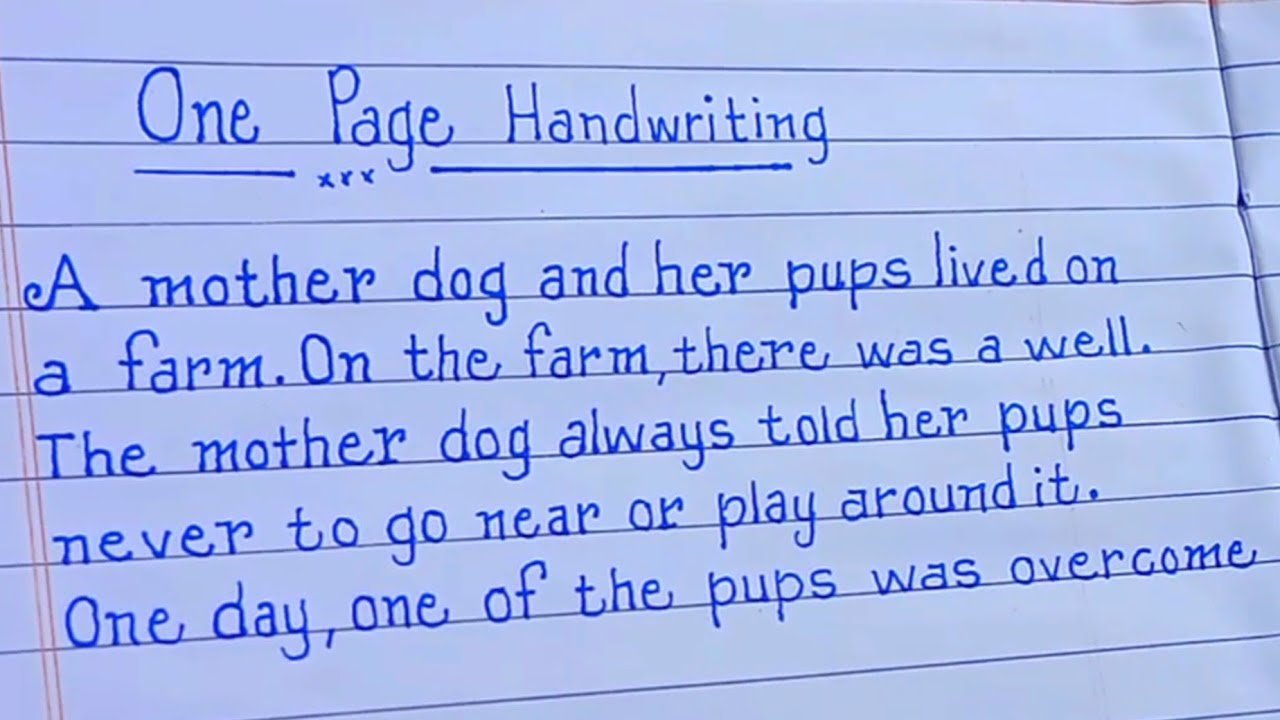 One Page Handwriting
xxx
A mother dog and her pups lived on
a farm. On the farm, there was a well.
The mother dog always told her pups
never to go near or play around it.
One day, one of the pups was overcome